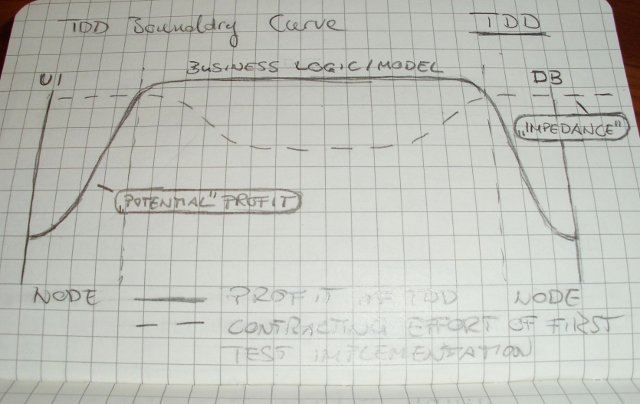 TDD Boundry Curve
TDD
BUSINESS LOGIC/MODEL
UI
DB
„IMPEDANCE"
„POTENTIAL" PROFIT
NODE
PROFIT OF TDD
NODE
CONTRACTING EFFORT OF FIRST
TEST IMPLEMENTATION